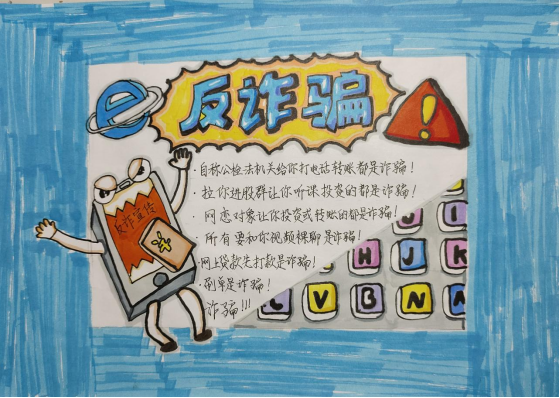 反诈骗
·自称公检法机关给你打电话转账都是诈骗!
·拉你进股群让你听课投资的都是诈骗!
·网恋对象让你投资或转账的都是诈骗!
·所有要和你视频裸聊是诈骗!
·网上贷款先打款是诈骗!
·刷单是诈骗!
诈骗!!!
反诈宣传
¥
e
!
U I
H J K
L V B N M